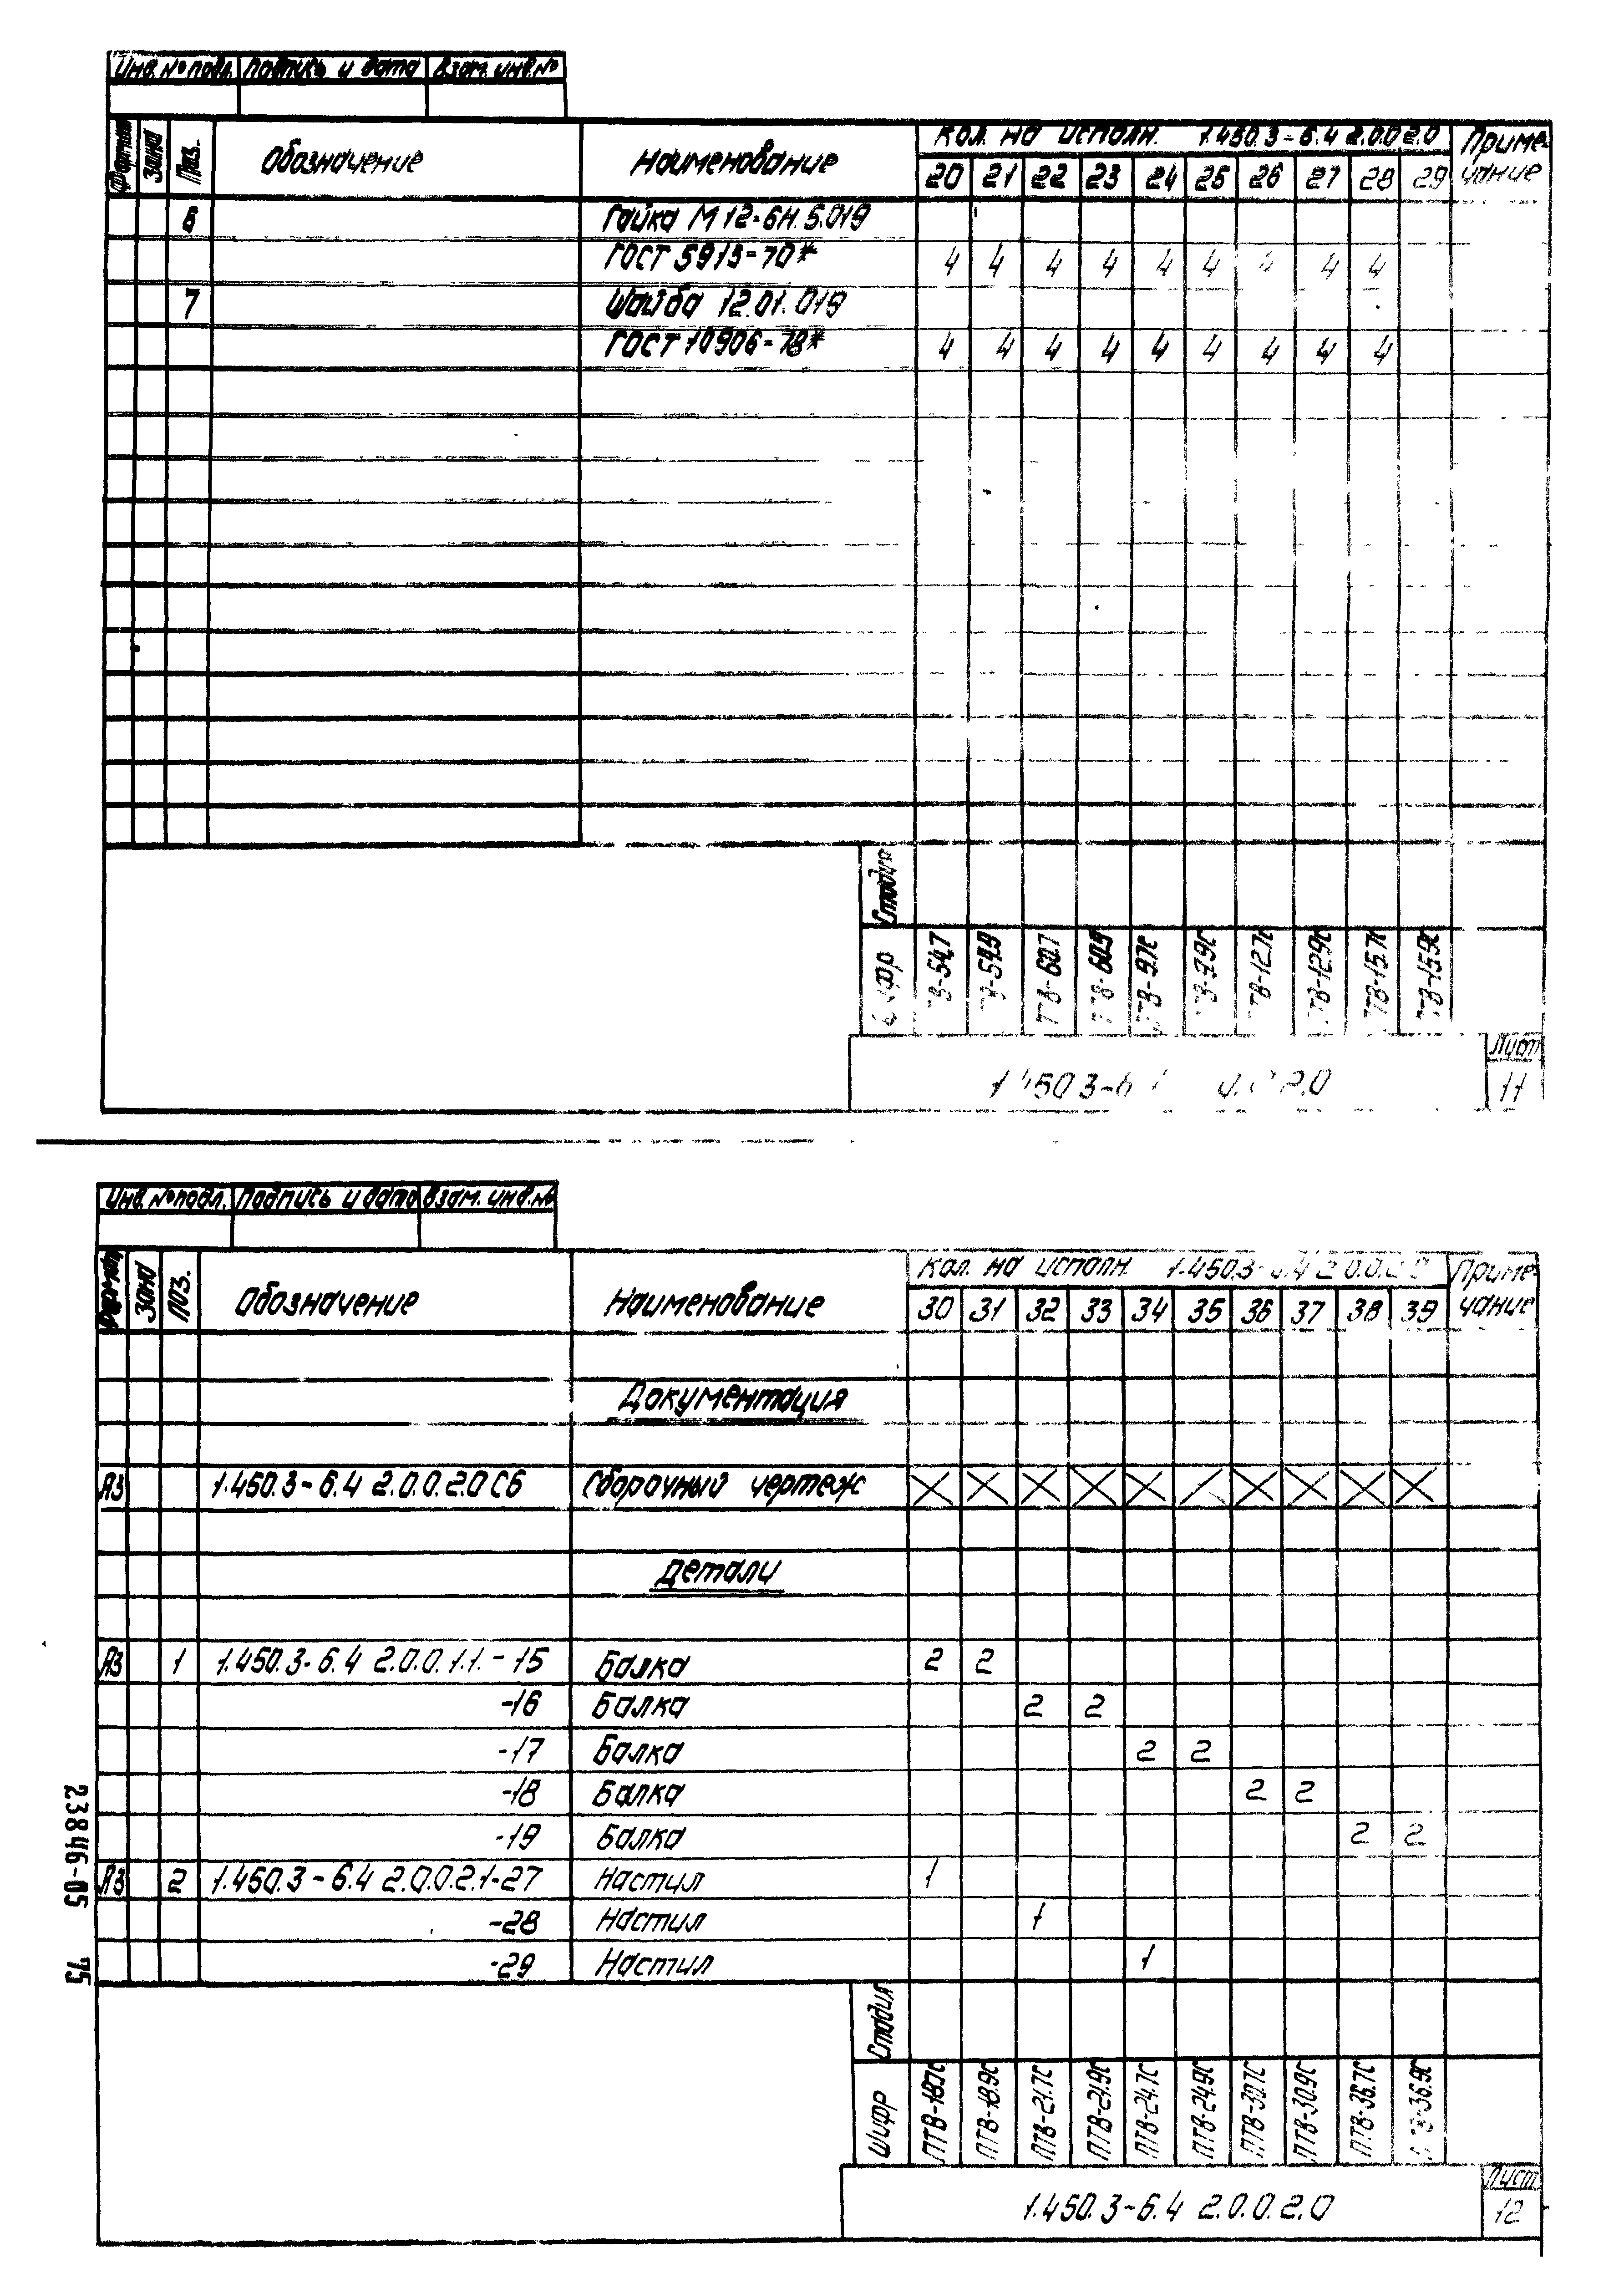 Инв. № подл. Подпись и дата Взам. инв. №
Формат Зона Поз. Обозначение Наименование Кол. на исполн. 1.450.3-6.4 2.0.0.2.0 Приме-
20 21 22 23 24 25 26 27 28 29 чание
6 Гайка М12-6Н.5.019
ГОСТ 5915-70* 4 4 4 4 4 4 4 4 4
7 Шайба 12.01.019
ГОСТ 10906-78* 4 4 4 4 4 4 4 4 4
Стадия
В-54.7 В-54.9 ТВ-60.7 ТВ-60.9 ТВ-9.7С В-9.9С ТВ-12.7С ТВ-12.9С ТВ-15.7С ТВ-15.9С
Лист
2.0 11
Инв. № подл. Подпись и дата Взам. инв. №
Формат Зона Поз. Обозначение Наименование Кол. на исполн. 1.450.3-6.4 2.0.0.2.0 Приме-
30 31 32 33 34 35 36 37 38 39 чание
Документация
А3 1.450.3-6.4 2.0.0.2.0 СБ Сборочный чертеж X X X X X X X X X X
Детали
А3 1 1.450.3-6.4 2.0.0.1.1.-15 Балка 2 2
-16 Балка 2 2
-17 Балка 2 2
-18 Балка 2 2
-19 Балка 2 2
А3 2 1.450.3-6.4 2.0.0.2.1-27 Настил 1
-28 Настил 1
-29 Настил 1
Стадия
Шифр ПТВ-18.7С ПТВ-18.9С ПТВ-21.7С ПТВ-21.9С ПТВ-24.7С ПТВ-24.9С ПТВ-30.7С ПТВ-30.9С ПТВ-36.7С В-36.9С
Лист
1.450.3-6.4 2.0.0.2.0 12
23846-05 75